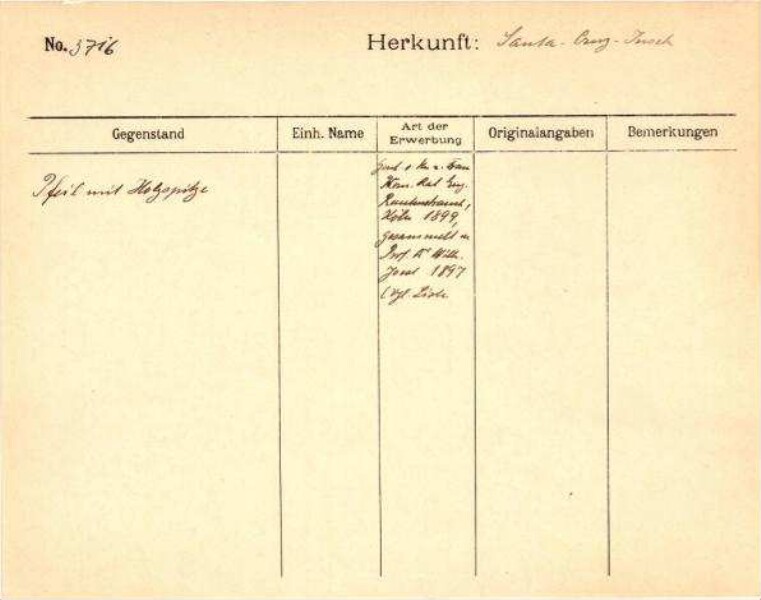 No. 3716
Herkunft: Santa-Cruz-Inseln
Gegenstand
Einh. Name
Art der
Erwerbung
Originalangaben
Bemerkungen
Pfeil mit Holzspitze
Gesch. v. Hn. u. Frau
Kom. Rat Eug.
Rautenstrauch,
Köln 1899,
gesammelt v.
Prof. Dr. Wilh.
Joest 1897
(Vgl. Liste